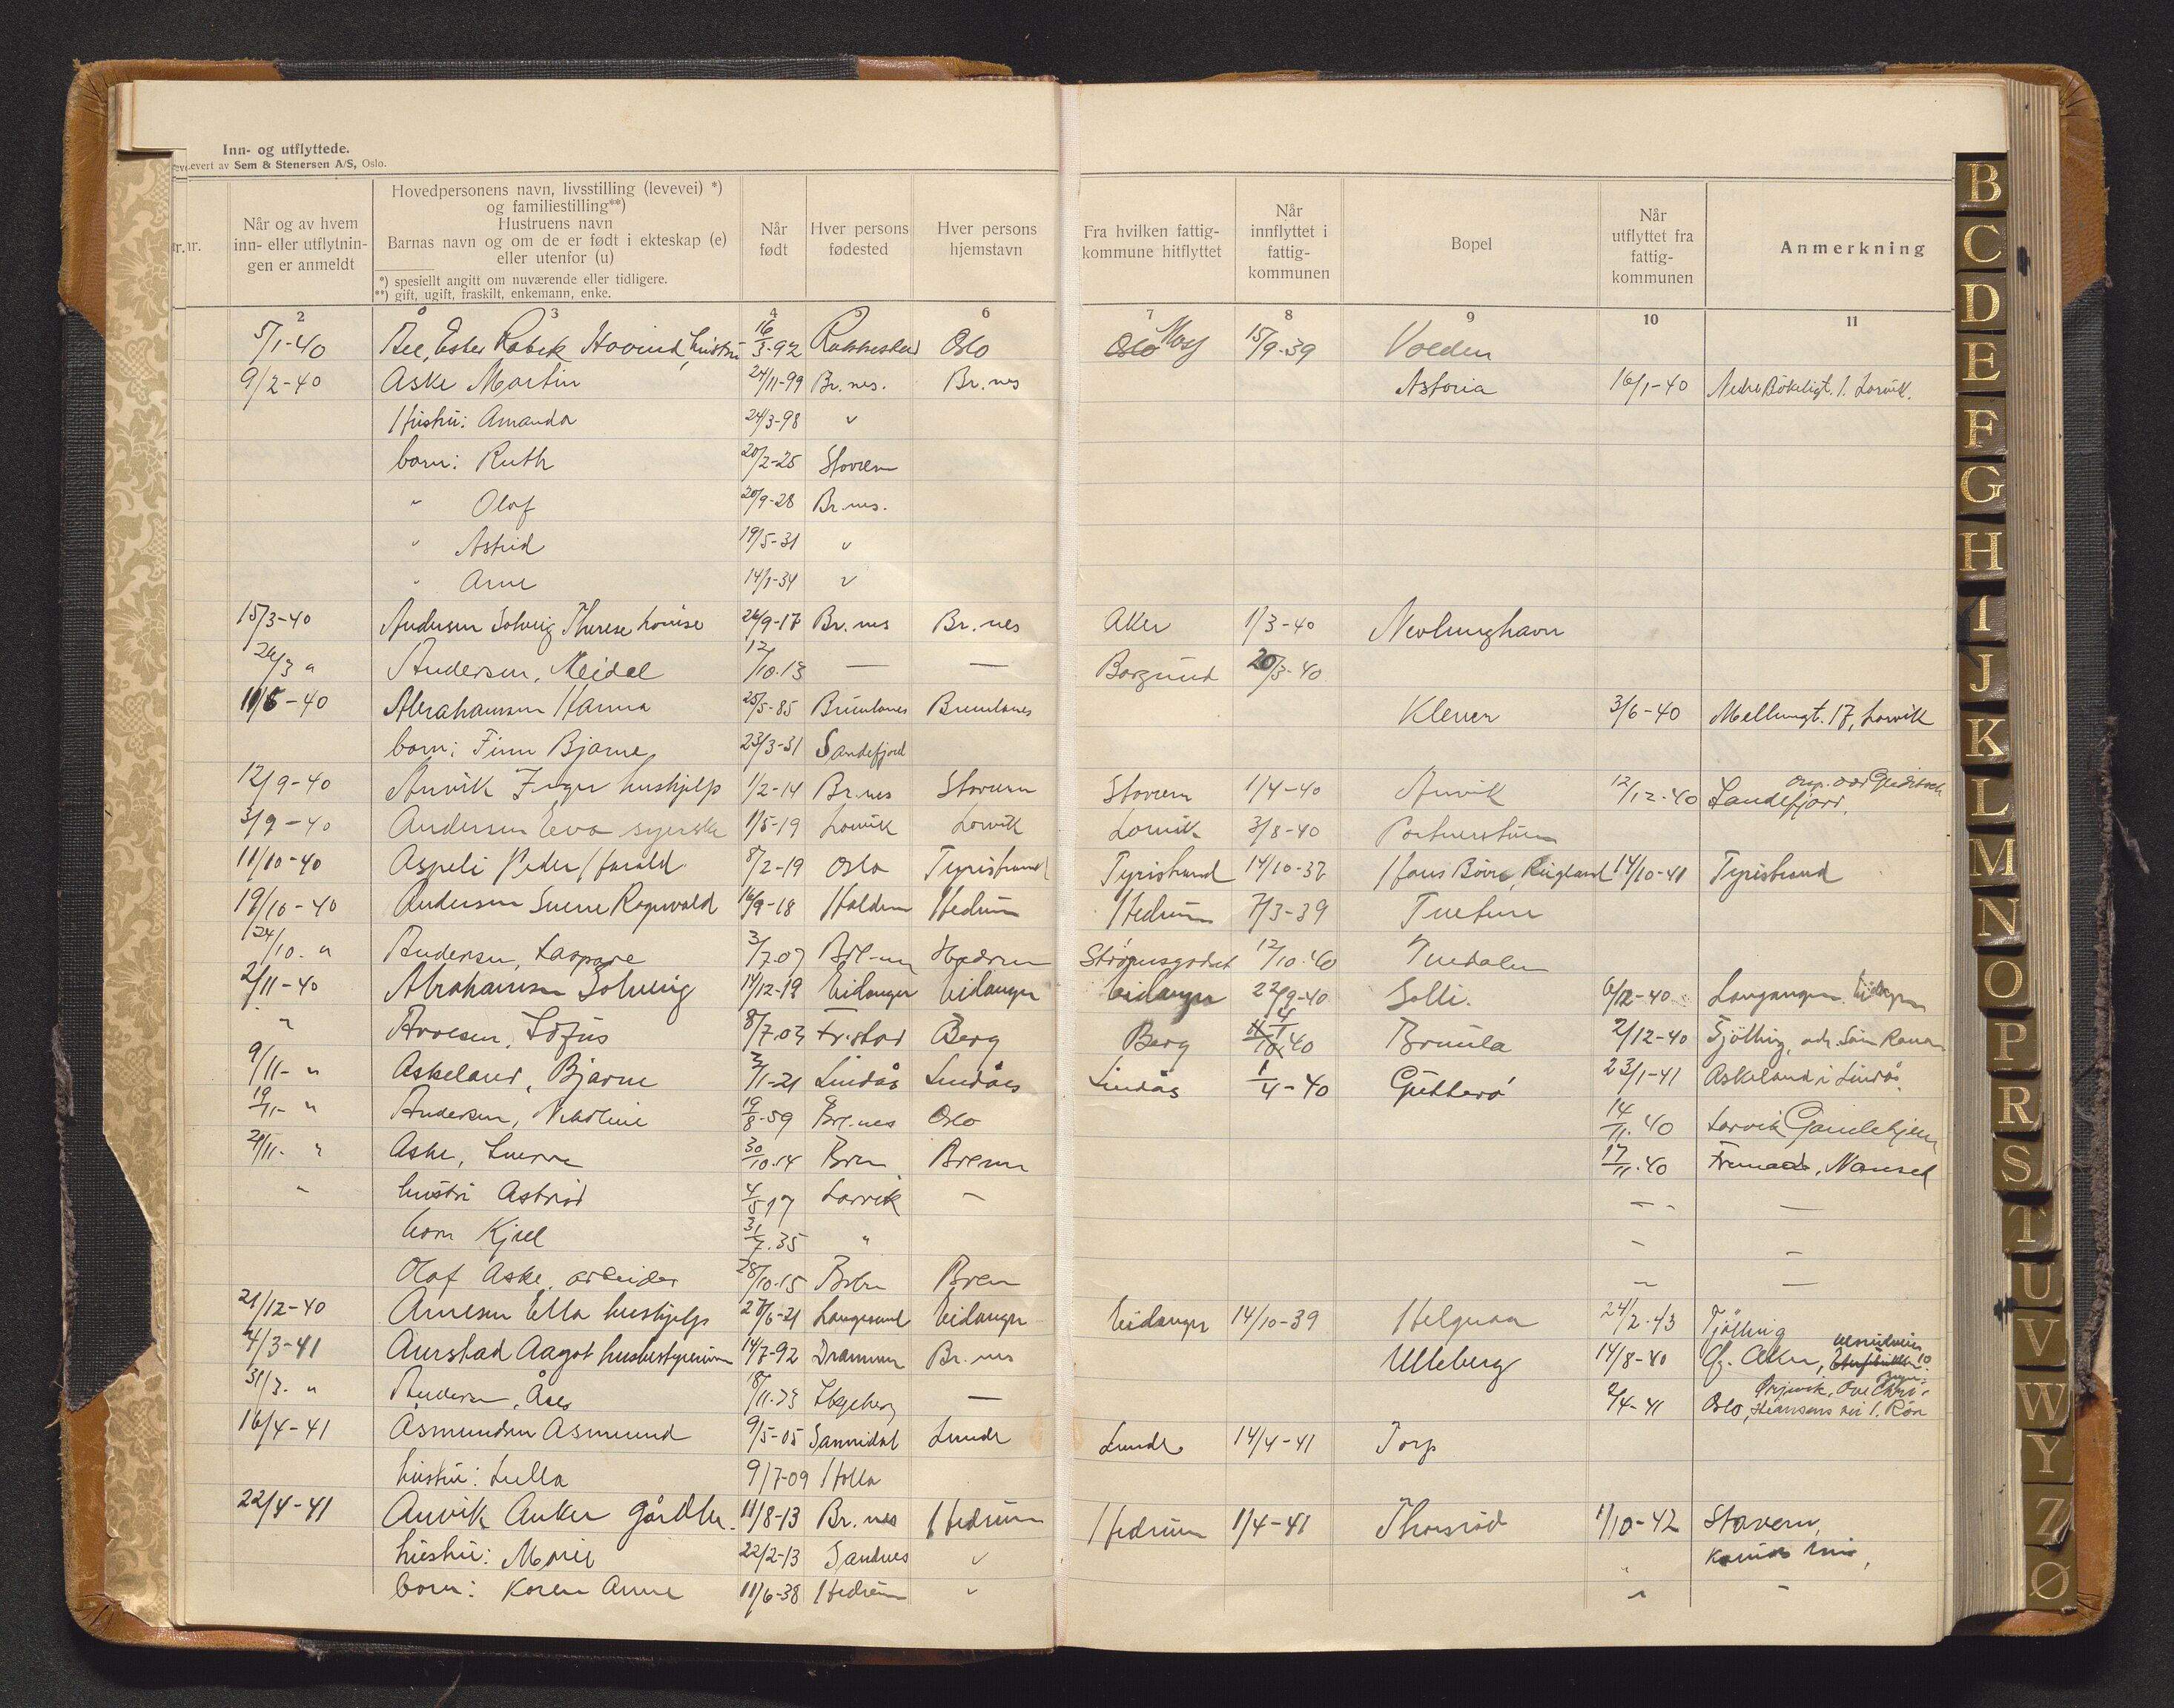 Inn- og utflyttede.
Levert av Sem & Stenersen A/S, Oslo.
nr.
Når og av hvem inn- eller utflytnin-gen er anmeldt
Hovedpersonens navn, livsstilling (levevei) *) og familiestilling**) Hustruens navn Barnas navn og om de er født i ekteskap (e) eller utenfor (u)
*) spesielt angitt om nuværende eller tidligere.
**) gift, ugift, fraskilt, enkemann, enke.
Når født
Hver persons fødested
Hver persons hjemstavn
Fra hvilken fattig-kommune hitflyttet
Når innflyttet i fattig-kommunen
Bopel
Når utflyttet fra fattig-kommunen
Anmerkning
2 3 4 5 6 7 8 9 10 11
5/1-40 Ester Hovind, hustru 16/3-92 Rakkestad Oslo Oslo Moss 15/9-39 Volden
9/2-40 Aske Martin 24/11-99 Br.nes. Br.nes Astoria 16/1-40 Nedre Bökeligt. 1. Larvik.
Hustru: Amanda 24/3-98 "
barn: Ruth 20/2-25 Stavern
" Olaf 20/9-28 Br.nes.
" Astrid 19/5-31 "
" Arne 14/1-34 "
15/3-40 Andersen Solveig Therese Lovise 26/9-17 Br.nes Br.nes Aker 1/3-40 Nevlunghavn
26/3 " Andersen, Meidel 12/10.13 — — Borgund 20/3-40
11/6-40 Abrahamsen Hanna 25/5-85 Brunlanes Brunlanes Klever 3/6-40 Mellumgt. 17, Larvik
barn: Finn Bjarne 23/3-31 Sandefjord
12/9-40 Anvik Inger hushjelp 1/2-14 Br.nes Stavern Stavern 1/4-40 Anvik 12/12-40 Sandefjord,
3/9-40 Andersen Eva syerske 1/5-19 Larvik Larvik Larvik 3/8-40 Partnerstuen
11/10-40 Aspeli Peder Harald 8/2-19 Oslo Tyristrand Tyristrand 14/10-37 Hans Bövre, Ringland 14/10-41 Tyristrand
19/10-40 Andersen Sverre Ragnvald 16/9-18 Halden Hedrum Hedrum 7/3-39 Tveten
24/10. " Andersen, Kaspare 3/7.07 Brl-nes Hedrum Strömsgodset 12/10.40 Tvedalen
2/11-40 Abrahamsen Solveig 14/12-19 Eidanger Eidanger Eidanger 22/9-40 Solli. 6/12-40 Langangen Eidanger
" Arvesen, Sofus 8/7.03 Fr.stad Berg Berg 40 Brunla 2/12-40 Tjölling,
9/11- " Askeland, Bjarne 3/11-21 Lindås Lindås Lindås 1/4-40 Gutterö 23/1-41 Askeland i Lindås.
19/11- " Andersen, Nikoline 19/8.59 Brl.nes Oslo 14/11.40 Larvik Gamlehjem
21/11. " Aske, Sverre 30/10.14 Bren Brenn 17/11.40 Fremad, Nanset
" hustru Astrid 4/5 17 Larvik — — —
barn Kjell 31/7.35 " — —
Olaf Aske, arbeider 28/10.15 Brln Bren — —
21/12-40 Arnesen Ella hushjelp 27/6-21 Langesund Eidanger Eidanger 14/10-39 Helgeroa 24/2-43 Tjølling
4/3-41 Aurstad Aagot husbestyrerinne 14/7-92 Drammen Br.nes Ulleberg 14/8-40 Aker,
31/3. " Andersen, Åse 8/11.23 — 2/4-41 Oslo,
16/4-41 Åsmundsen Asmund 9/5-05 Sannidal Lunde Lunde 14/4-41 Torp
hustru: Lulla 9/7-09 Holla
22/4-41 Anvik Anker gårdbr. 11/8-13 Br.nes Hedrum Hedrum 1/4-41 Thorsrød 1/10-42 Stavern,
hustru: Marie 22/2-13 Sandnes " "
barn: Karen Anne 11/6-38 Hedrum " " —
B
C
D
E
F
G
H
I
J
K
L
M
N
O
P
R
S
T
U
V
W
Y
Z
Ø